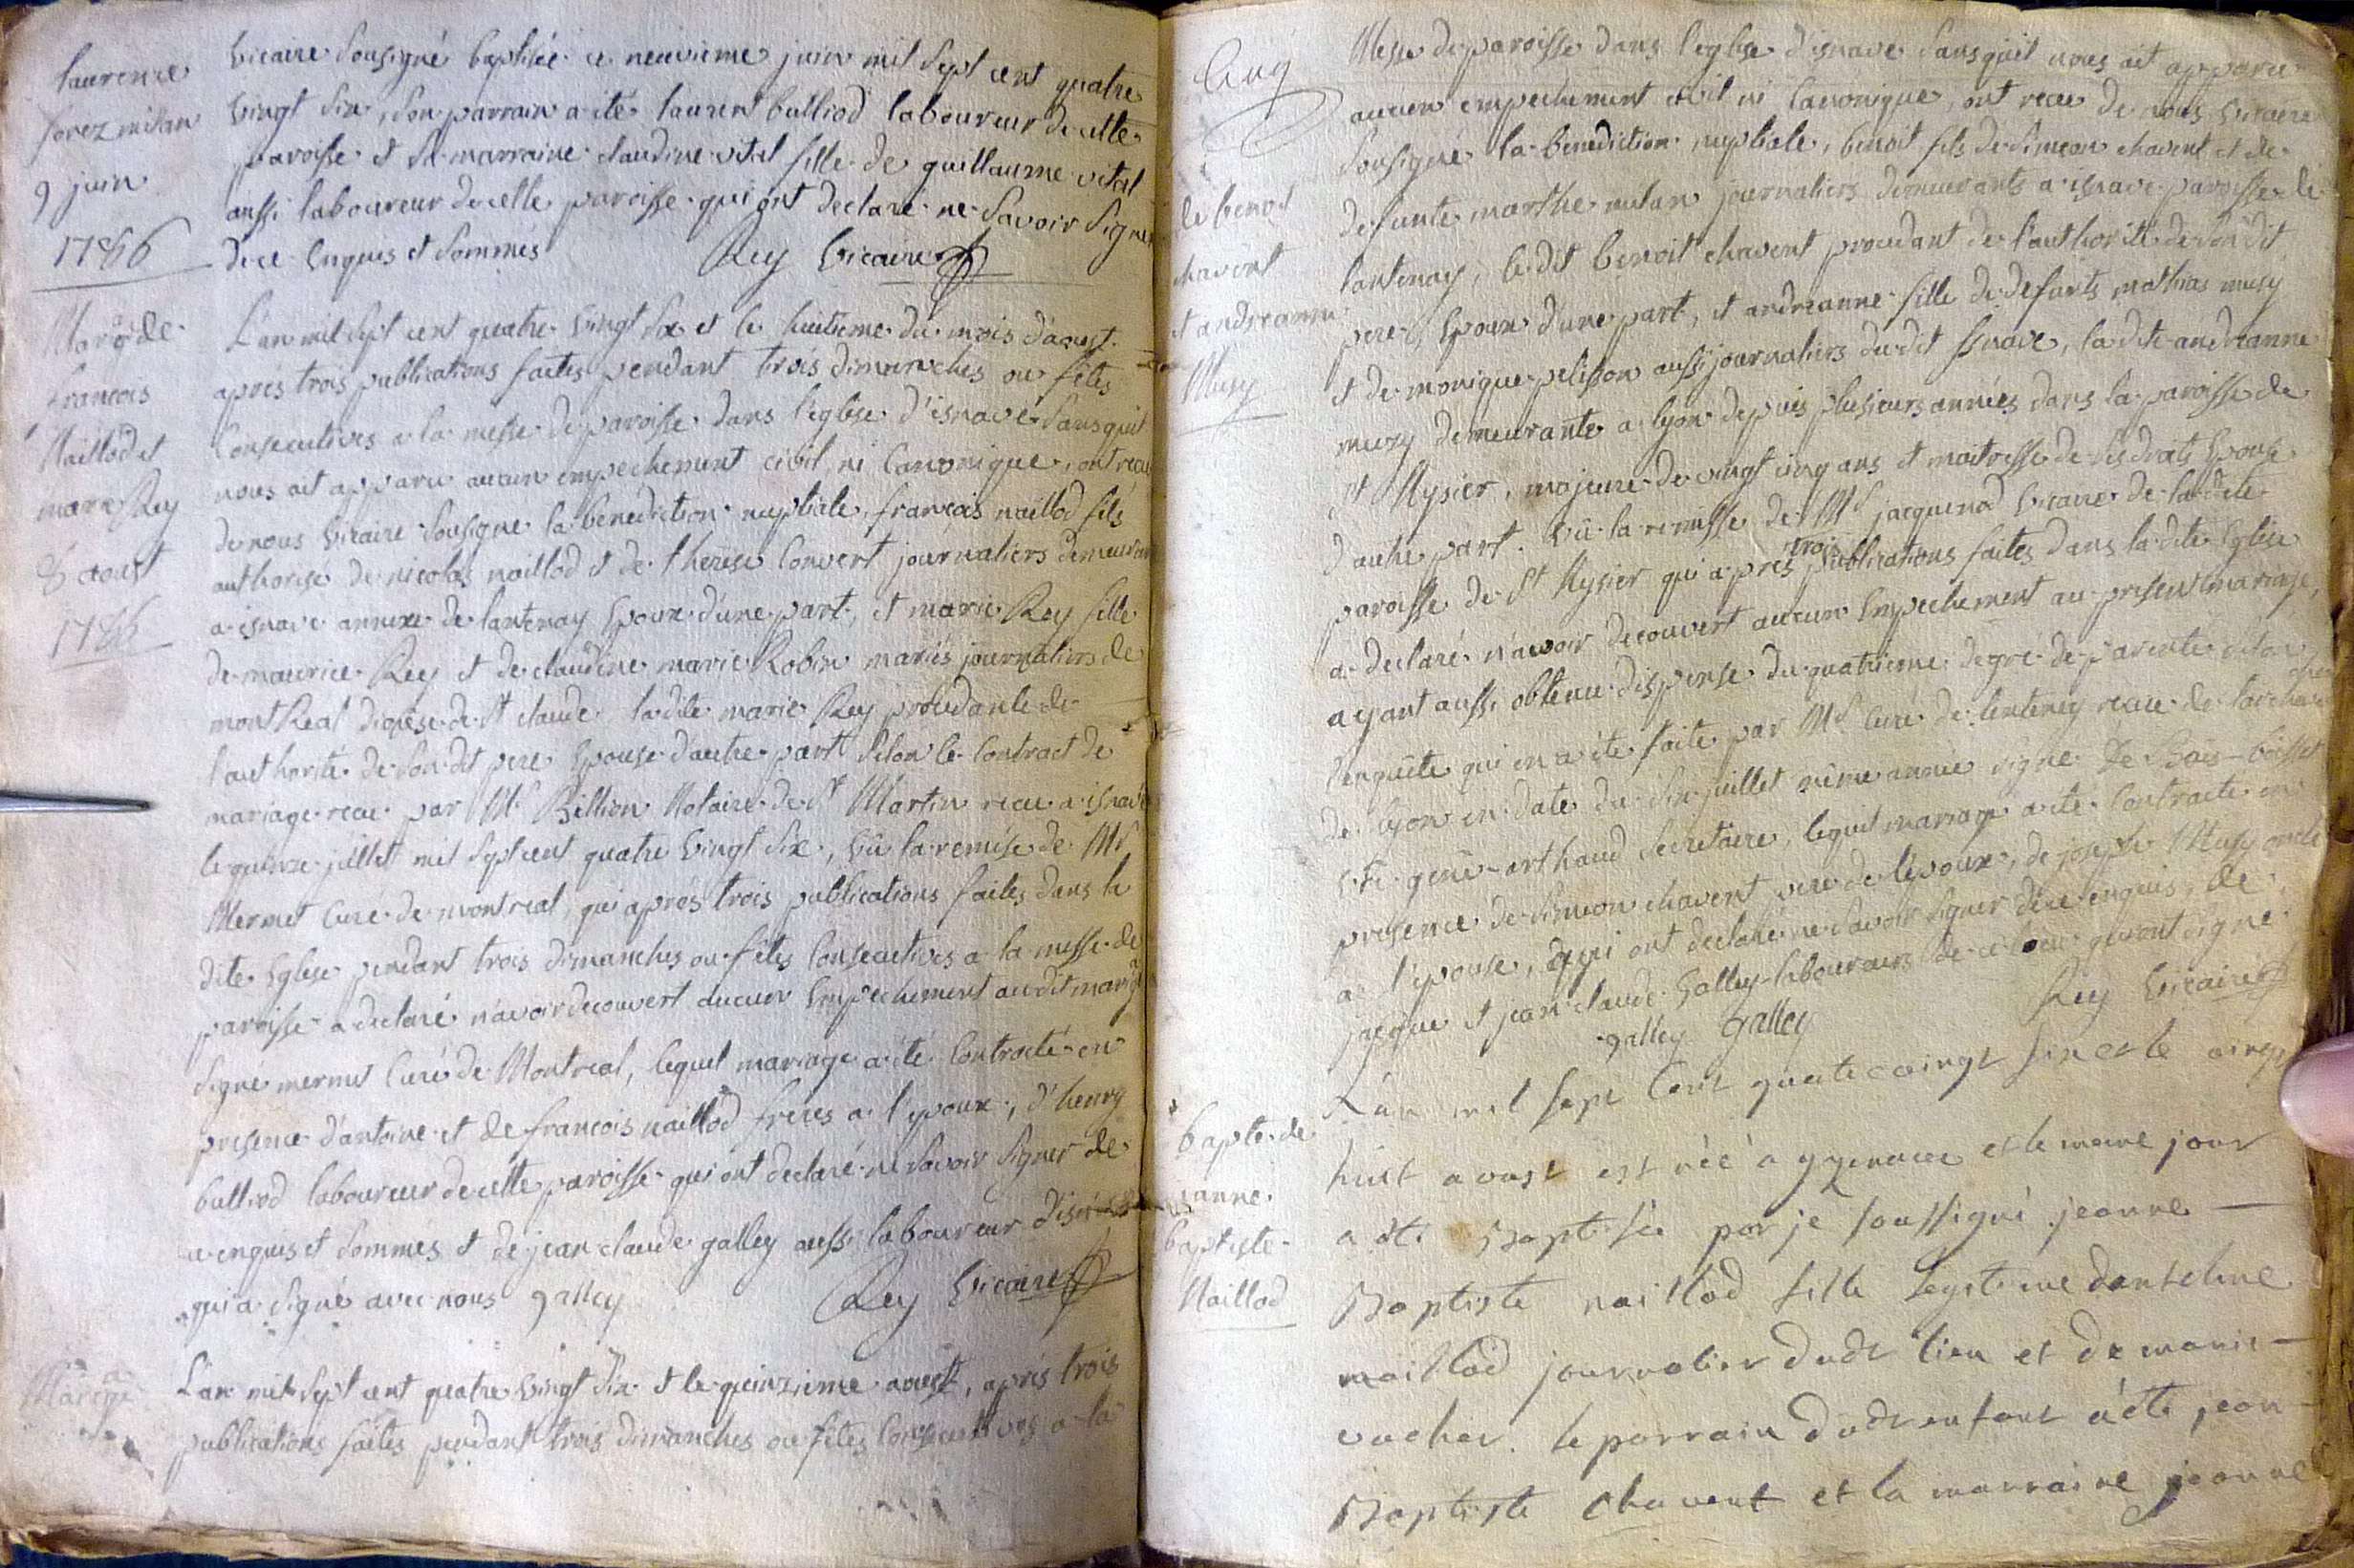 laurence
forez milan
9 juin
1786
Vicaire sousigné baptisée ce neuvieme juin mil sept cent quatre
vingt six, son parrain a été laurent balliod laboureur de cette
paroisse et sa marraine claudine vital fille de guillaume vital
aussi laboureur de cette paroisse qui ont declaré ne savoir signer
de ce enquis et sommés Rey Vicaire
Marge de
francois
Naillod et
marie Rey
8 aoust
1786
L'an mil sept cent quatre vingt six et le huitieme du mois d'aoust
aprés trois publications faites pendant trois dimanches ou fêtes
Consecutives a la messe de paroisse dans l'eglise d'isnave sans quil
nous ait apparu aucun empechement civil, ni Canonique, ont recu
de nous Vicaire sousigné la benediction nuptiale, francois naillod fils
authorisé de nicolas naillod et de therese Convert journaliers demeurant
a isnave annexe de lantenay Epoux d'une part, et marie Rey fille
de maurice Rey et de claudine marie Robin mariés journaliers de
montReal diocèse de st claude, ladite marie Rey procedante de
l'authorité de son dit pere Epouse d'autre part selon le Contract de
mariage recu par Me Billion Notaire de st Martin recu a isnave
le quinze juillet mil sept cent quatre vingt six, Vû la remise de Mr
Mermet Curé de montreal, qui aprés trois publications faites dans la
dite Eglise pendant trois dimanches ou fêtes Consecutives a la messe de
paroisse a declaré n'avoir decouvert aucun Empechement audit marge
signé mermet Curé de Montreal, lequel mariage a été Contracté en
presence d'antoine et de francois naillod freres a l'epoux, d'henry
balliod laboureur de cette paroisse qui ont declaré ne savoir signer de
ce enquis et sommés et de jean claude galley aussi laboureur d'isnave
qui a signé avec nous galley Rey Vicaire
Marge
L'an mil sept cent quatre vingt six et le quinzieme aoust, aprés trois
publications faites pendant trois dimanches ou fêtes Consecutives a la
de benoi
chavent
et andreanne
Musy
Messe de paroisse dans l'eglise d'isnave sans quil nous ait apparu
aucun empechement civil ni Canonique, ont recu de nous Vicaire
sousigné la benediction nuptiale, benoit fils de simeon chavent et de
defunte marthe milan journaliers demeurants a isnave paroisse de
lantenay, le dit benoit chavent procedant de l'authorité de son dit
pere, Epoux d'une part, et andreanne fille de defunts mathias musy
et de monique pelisson aussi journaliers du dit isnave, la dite andreanne
muzy demeurante a lyon depuis plusieurs années dans la paroisse de
st Nysier, majeure de vingt cinq ans et maitresse de ses droits Epouse
d'autre part. Vû la remisse de Mr jacquenod Vicaire de ladite
paroisse de st Nysier qui aprés trois publications faites dans la dite Eglise
a declaré n'avoir decouvert aucun Empechement au present mariage,
ayant aussi obtenu dispense du quatrieme degré de parenté
l'enquête qui en a été faite par Mr Curé de lentenay recue de
de lyon en date du six juillet même année signé
arthaud secretaire, lequel mariage a été Contracté en
presence de simeon chavent pere de l'epoux, de joseph Musy oncle
a l'epouse, qui ont declaré ne savoir signer de ce enquis, de
jacque et jean claude Galley laboureurs de ce lieu qui ont signé
galley Galley Rey Vicaire
bapte. de
janne
baptiste
Naillod
L'an mil sept Cent quatre vingt six et le vingt
huit avoust est née à yzenave et le meme jour
a été Baptisée par je soussigné jeanne
Baptiste naillod fille legitime danselme
naillod journalier dudt lieu et de marie
vacher. le parrain dudt enfant a été jean
Baptiste Chavent et la marraine jeanne